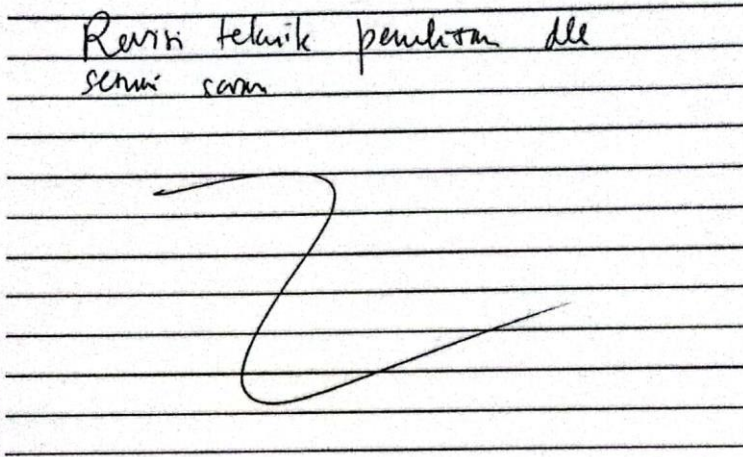 Revisi teknik penulisan dll
sesuai saran